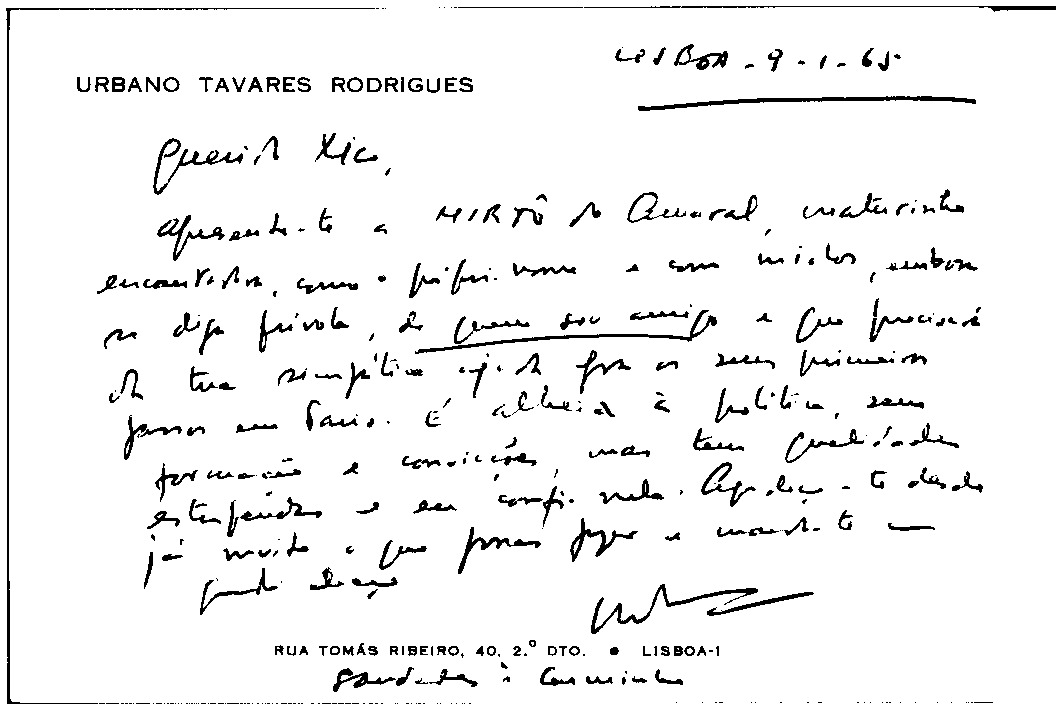 URBANO TAVARES RODRIGUES
LISBOA - 9 - 1 - 65
Querido Xico,
apresento-te a MIRTÔ do Amaral,
encantadora, como o próprio nome e com miolos, embora
se diga frívola, de quem sou amigo e que precisará
da tua simpática ajuda para os seus primeiros
passos em Paris. É alheia à política, sem
formação e convicções, mas tem qualidades
estupendas e eu confio nela. Agradeço-te desde
já muito o que possas fazer e mando-te um
grande abraço
Urbano
RUA TOMÁS RIBEIRO, 40, 2.º DTO. • LISBOA-1
Saudades à Carminho